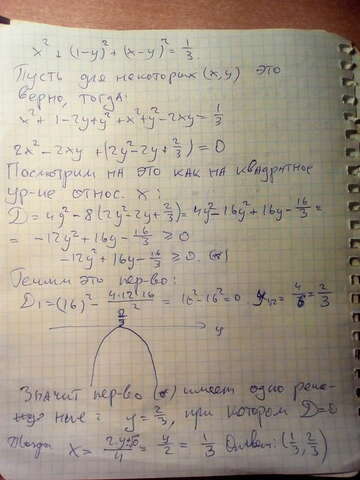 x² + (1-y)² + (x-y)² = 1/3
Пусть для некоторых (x,y) это
верно, тогда:
x² + 1 - 2y + y² + x² + y² - 2xy = 1/3
2x² - 2xy + (2y² - 2y + 2/3) = 0
Посмотрим на это как на квадратное
ур-ние относ. x:
D = 4y² - 8(2y² - 2y + 2/3) = 4y² - 16y² + 16y - 16/3 =
= -12y² + 16y - 16/3 ≥ 0
-12y² + 16y - 16/3 ≥ 0. (*)
Решим это нер-во:
D₁ = (16)² - 4·12·16/3 = 16² - 16² = 0. y₁,₂ = 4/6 = 2/3
2/3
y
Значит нер-во (*) имеет одно реше-
ние: y = 2/3, при котором D = 0
Тогда x = 2·y±0/4 = y/2 = 1/3 Ответ: (1/3, 2/3)